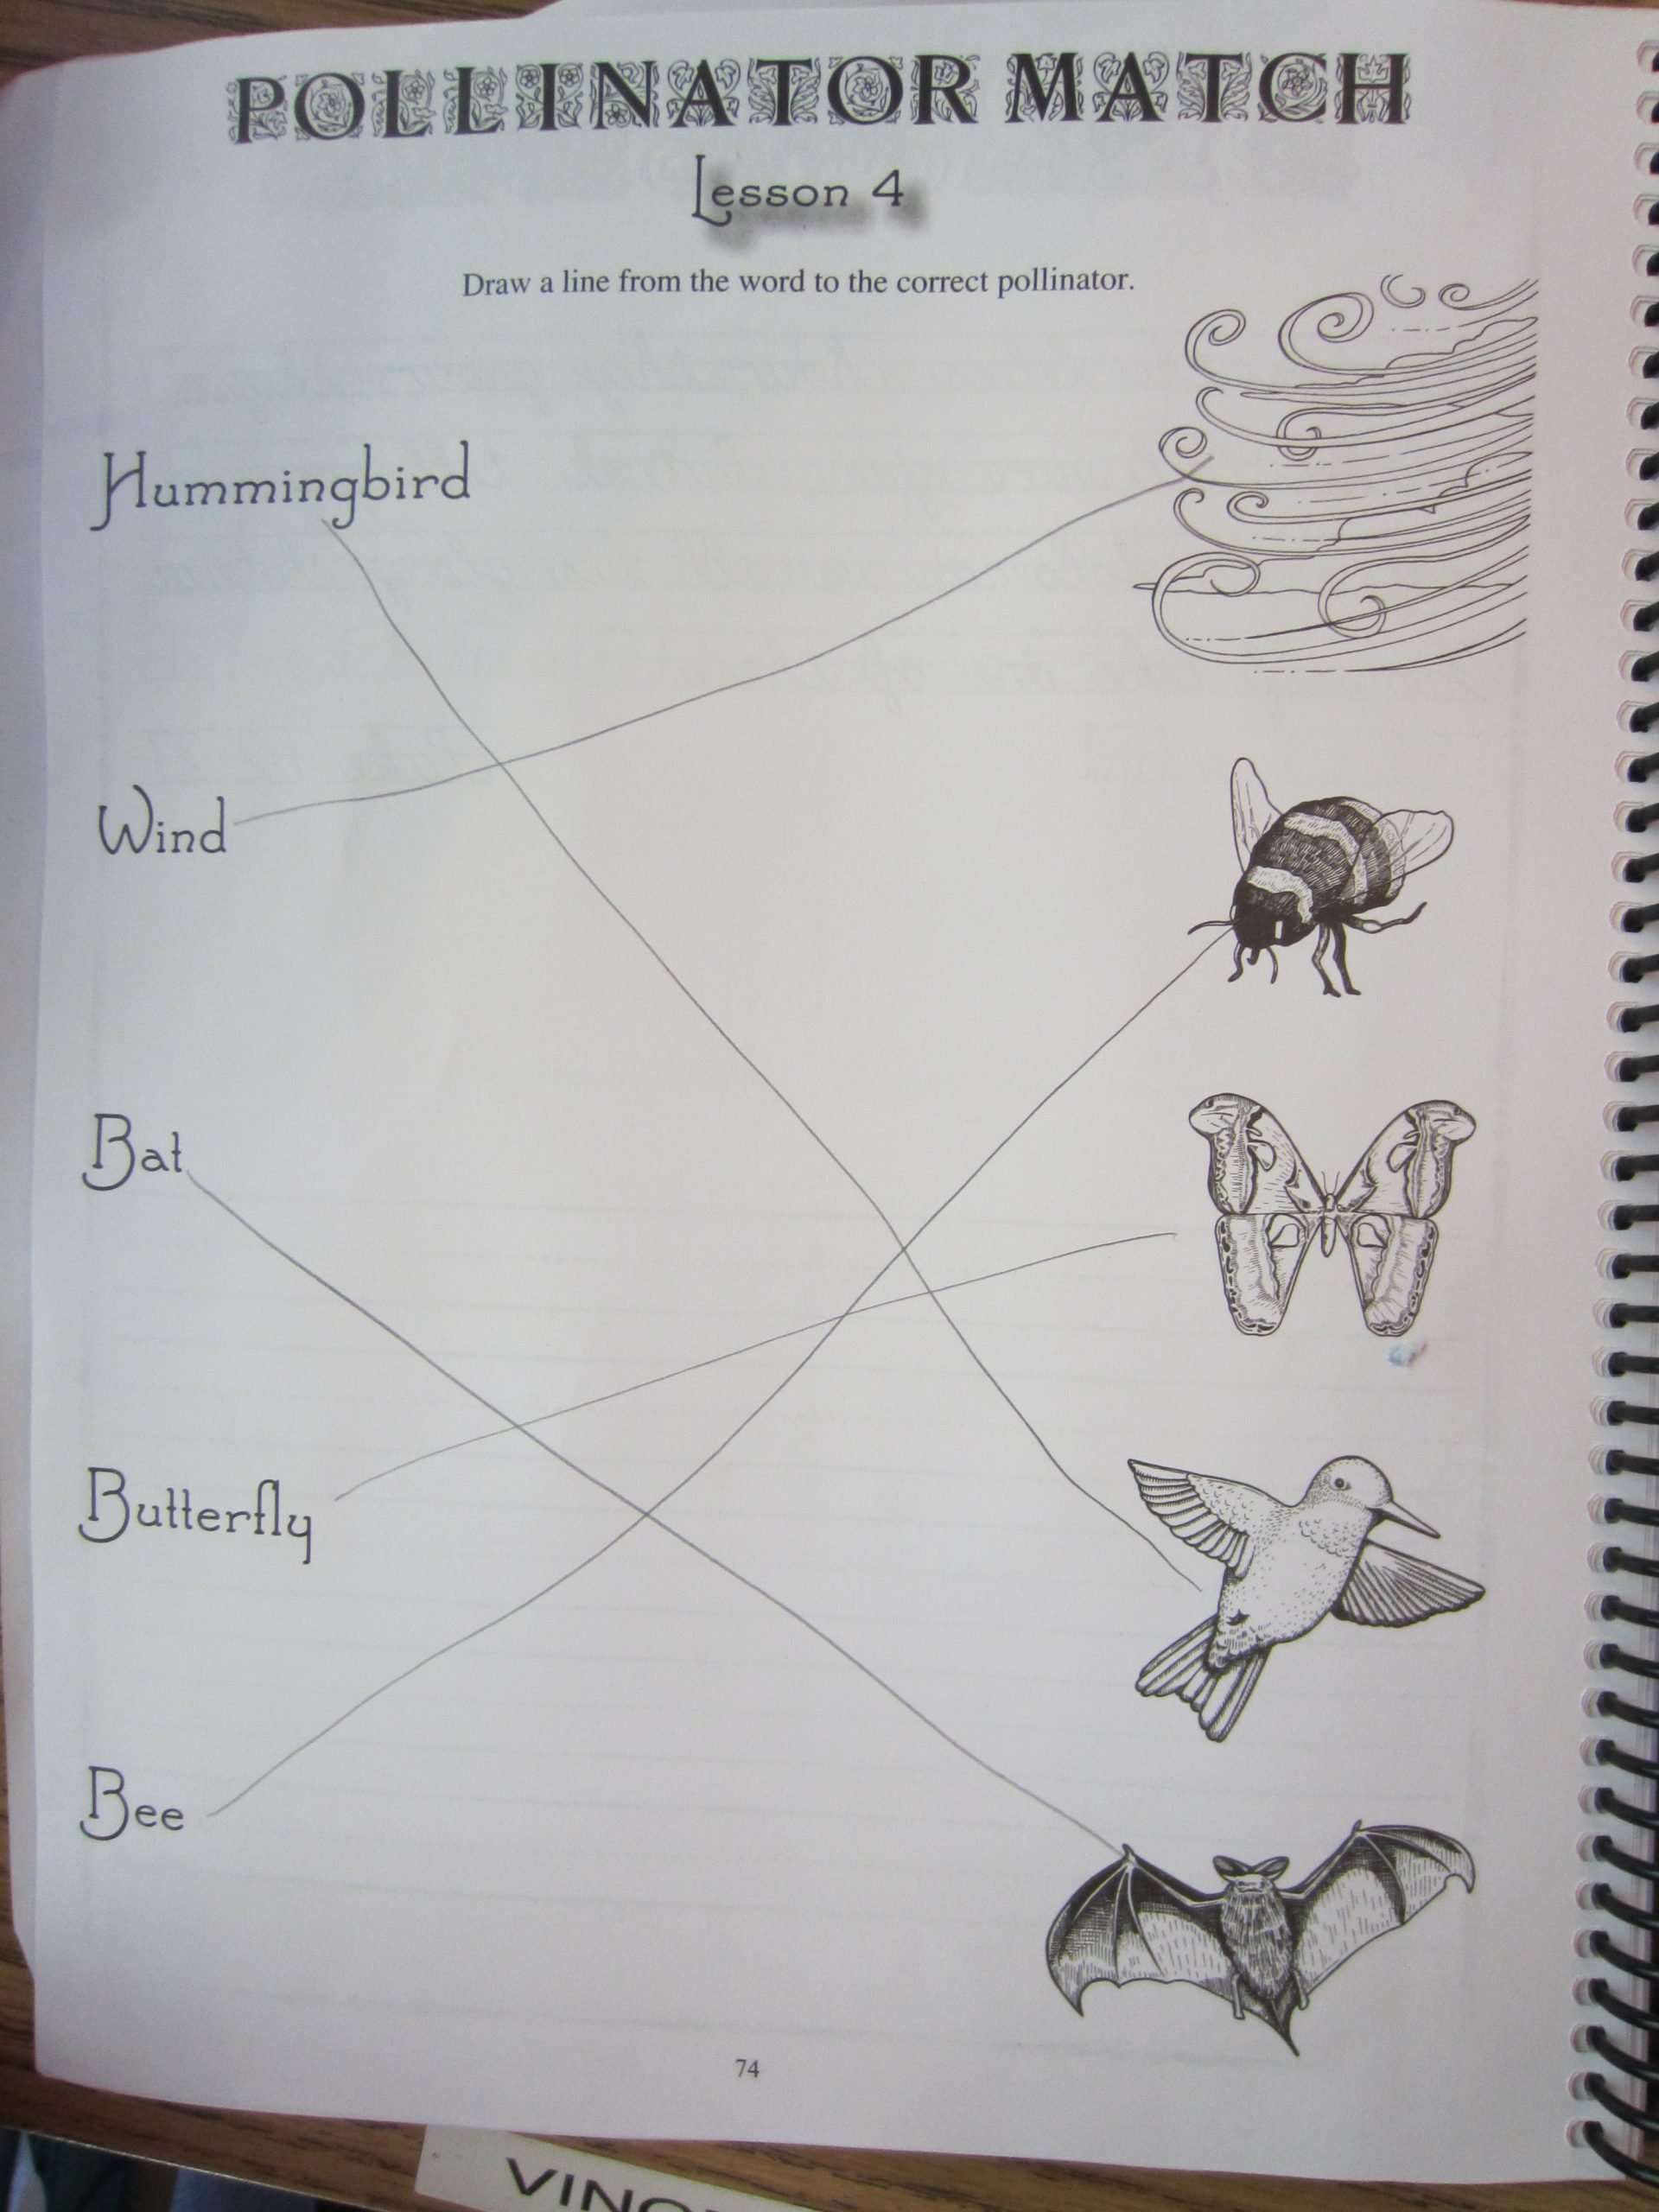 POLLINATOR MATCH
Lesson 4
Draw a line from the word to the correct pollinator.
Hummingbird
Wind
Bat
Butterfly
Bee
74